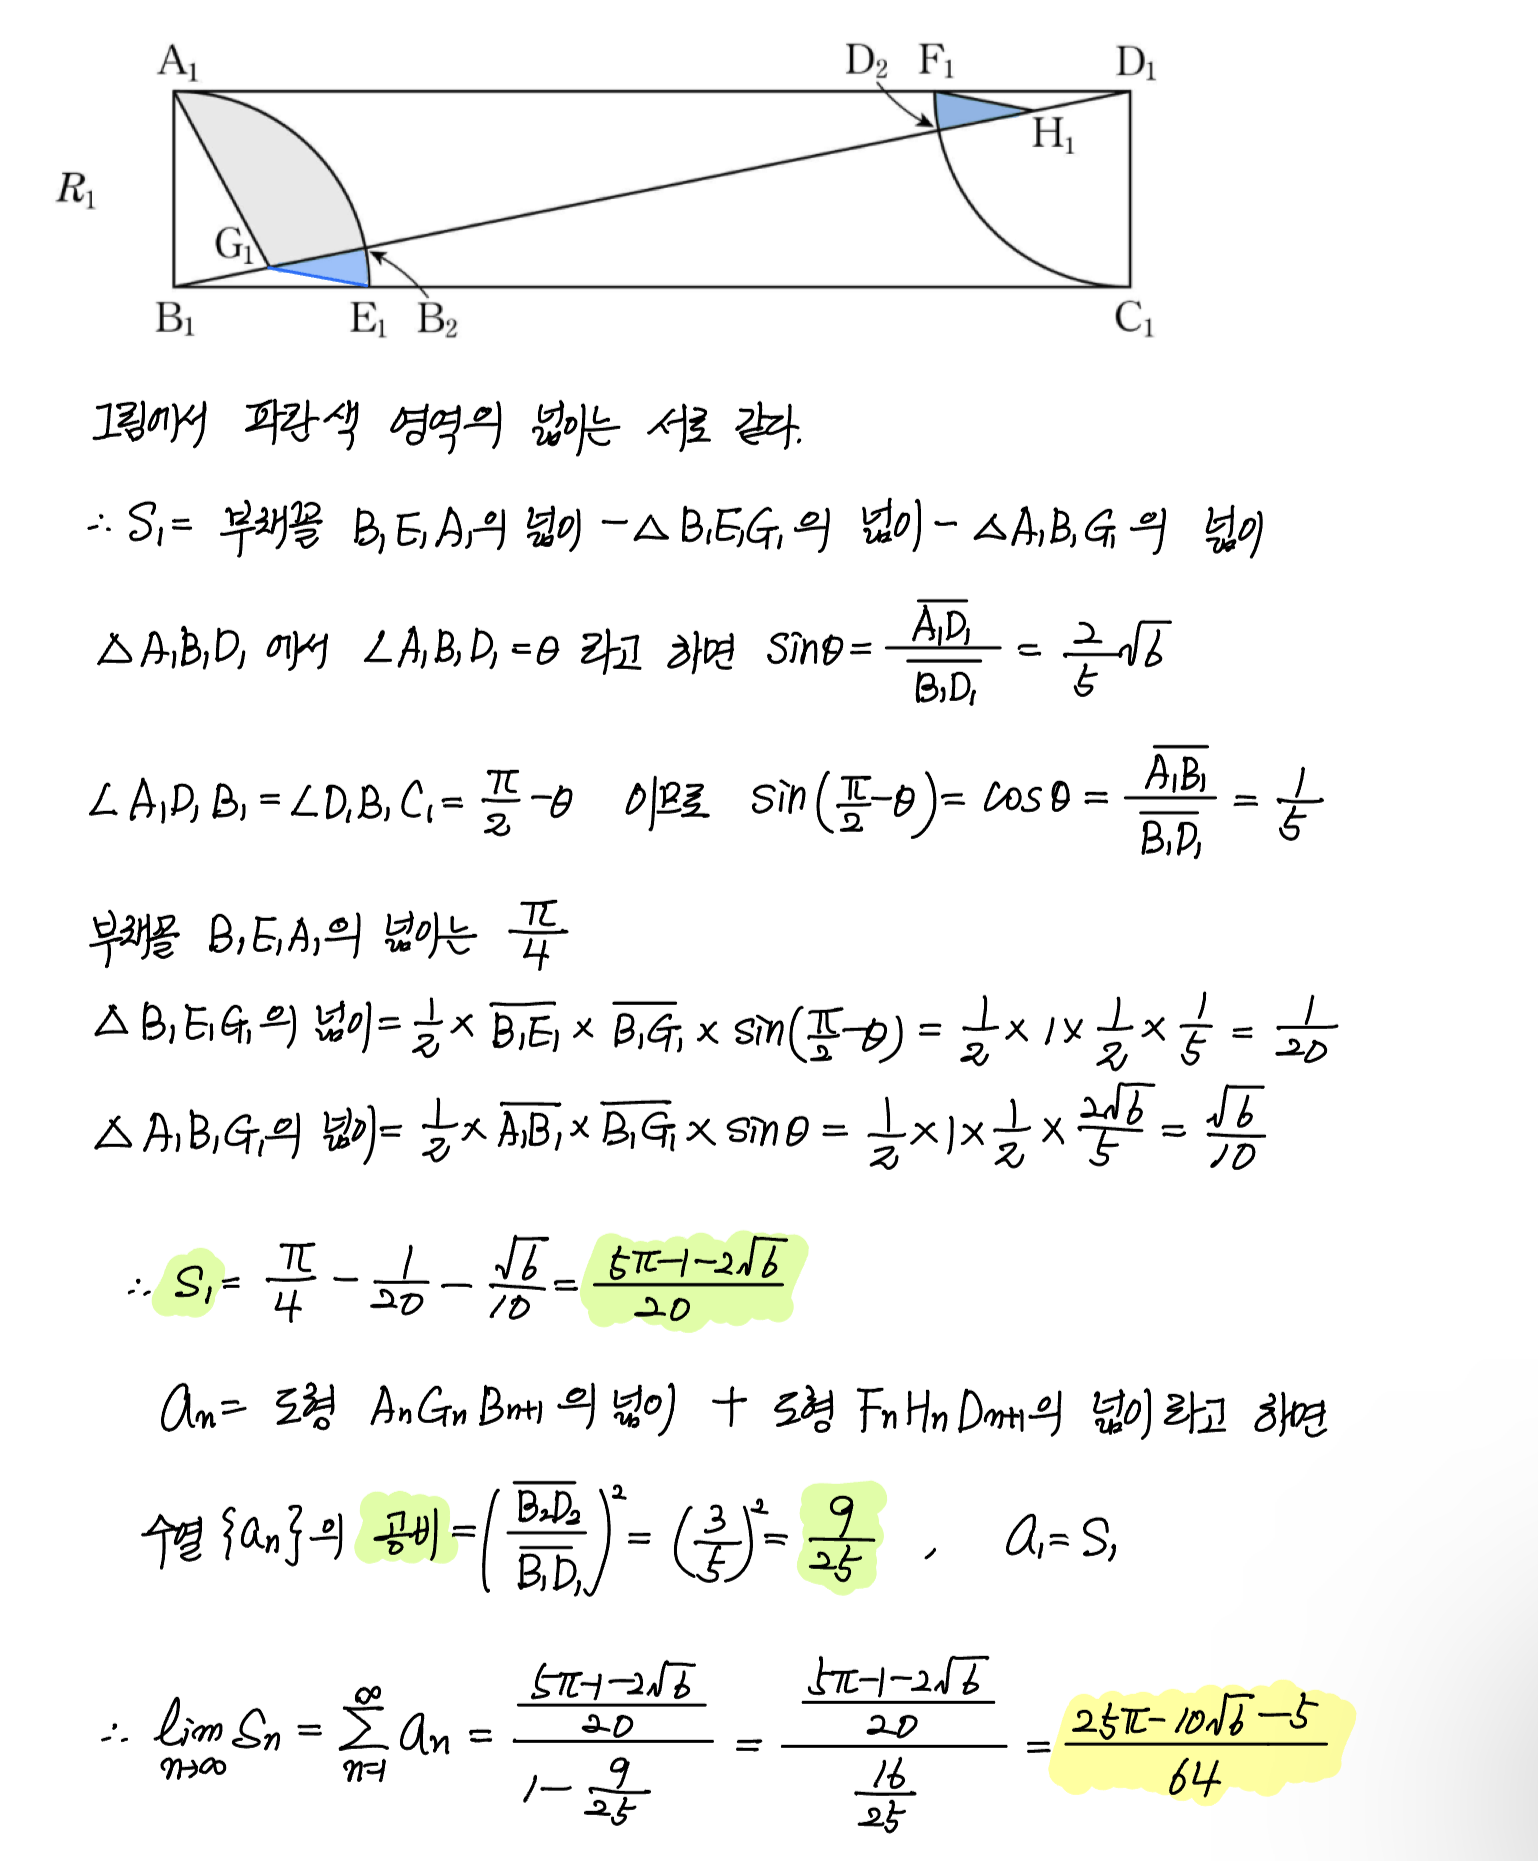 A₁ D₂ F₁ D₁
H₁
R₁
G₁
B₁ E₁ B₂ C₁
그림에서 파란색 영역의 넓이는 서로 같다.
∴ S₁ = 부채꼴 B₁E₁A₁의 넓이 - △B₁E₁G₁의 넓이 - △A₁B₁G₁의 넓이
△A₁B₁D₁에서 ∠A₁B₁D₁ = θ 라고 하면 sinθ = \frac{\overline{A₁D₁}}{\overline{B₁D₁}} = \frac{2}{5}√6
∠A₁D₁B₁ = ∠D₁B₁C₁ = \frac{π}{2} - θ 이므로 sin(\frac{π}{2} - θ) = cosθ = \frac{\overline{A₁B₁}}{\overline{B₁D₁}} = \frac{1}{5}
부채꼴 B₁E₁A₁의 넓이는 \frac{π}{4}
△B₁E₁G₁의 넓이 = \frac{1}{2} × \overline{B₁E₁} × \overline{B₁G₁} × sin(\frac{π}{2} - θ) = \frac{1}{2} × 1 × \frac{1}{2} × \frac{1}{5} = \frac{1}{20}
△A₁B₁G₁의 넓이 = \frac{1}{2} × \overline{A₁B₁} × \overline{B₁G₁} × sinθ = \frac{1}{2} × 1 × \frac{1}{2} × \frac{2√6}{5} = \frac{√6}{10}
∴ S₁ = \frac{π}{4} - \frac{1}{20} - \frac{√6}{10} = \frac{5π-1-2√6}{20}
aₙ = 도형 AₙGₙBₙ₊₁의 넓이 + 도형 FₙHₙDₙ₊₁의 넓이라고 하면
수열 {aₙ}의 공비 = (\frac{\overline{B₂D₂}}{\overline{B₁D₁}})² = (\frac{3}{5})² = \frac{9}{25} , a₁ = S₁
∴ \lim_{n→∞} Sₙ = \sum_{n=1}^{∞} aₙ = \frac{\frac{5π-1-2√6}{20}}{1-\frac{9}{25}} = \frac{\frac{5π-1-2√6}{20}}{\frac{16}{25}} = \frac{25π-10√6-5}{64}